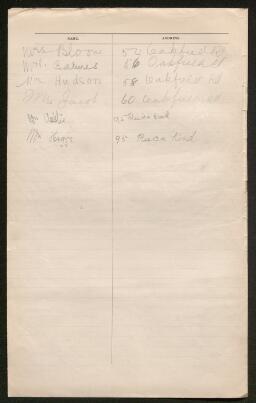 NAME. ADDRESS.
Mrs Bloom 54 Oakfield Rd
Mrs. Barnes 56 Oakfield Rd
Mr Hudson 58 Oakfield Rd
Mrs Jacob 60 Oakfield Rd
Mrs 95
Mrs 95 Road